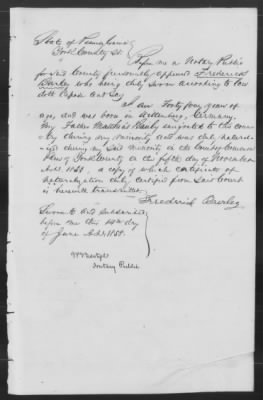 State of Pennsylvania
York County SS.
Before me a Notary Public
for said County personally appeared Frederick
who being duly sworn according to law
doth depose and Say
I am Forty four years of
age, and was born in Germany.
My Father Mathias emigrated to this coun-
try during my minority and was duly natural-
ized during my said minority in the Court of Common
Pleas of York County on the fifth day of November
A.D. a copy of which Certificate of
naturalization duly certified from said Court
is herewith transmitted.
Sworn to and subscribed
before me this day
of June A.D. 1859.
Frederick
Notary Public